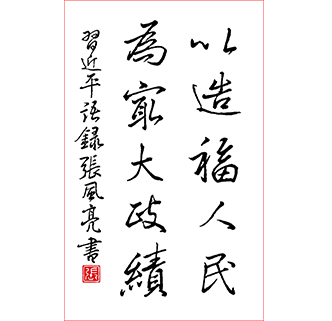 以造福人民
為最大政績
習近平語錄張風亮書
張